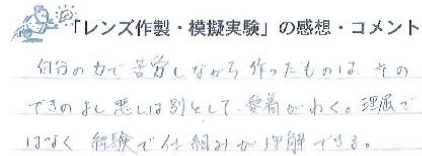 「レンズ作製・模擬実験」の感想・コメント
自分の力で苦労しながら作ったものは、その
できのよし悪しは別として、愛着がわく。理屈で
はなく経験で仕組みが理解できる。